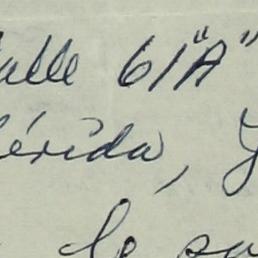 Calle 61 "A"
Mérida, Y
de